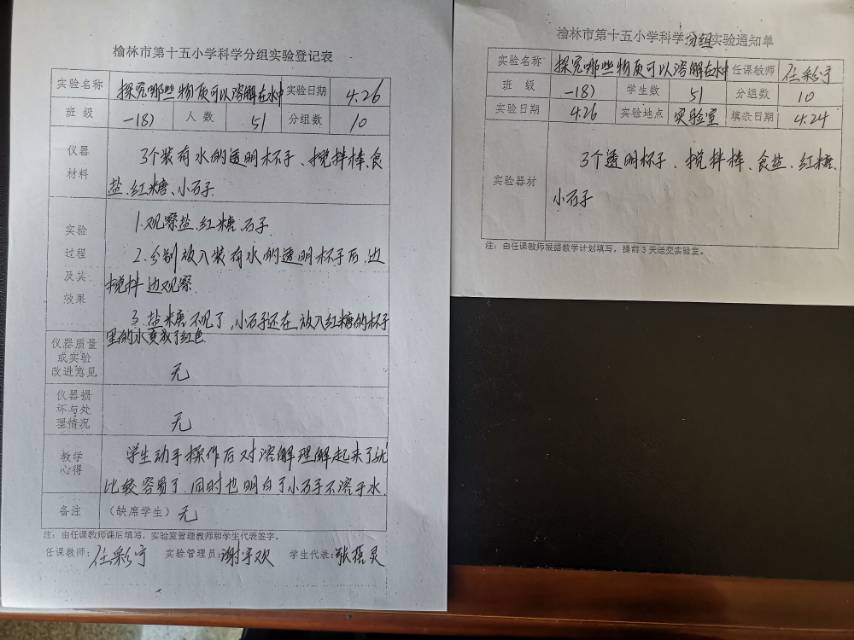 榆林市第十五小学科学分组实验登记表
实验名称 探究哪些物质可以溶解在水中 实验日期 4.26
班 级 一(8) 人 数 51 分组数 10
仪器
材料
3个装有水的透明杯子、搅拌棒、食
盐、红糖、小石子
实验
过程
及其
效果
1.观察盐、红糖、石子
2.分别放入装有水的透明杯子后,边
搅拌边观察
3.盐、糖不见了,小石子还在,放入红糖的杯子
里的水变成了红色
仪器质量
或实验
改进意见
无
仪器损
坏与处
理情况
无
教学
心得
学生动手操作后对溶解理解起来了就
比较容易了,同时也明白了小石子不溶于水.
备注 (缺席学生) 无
注:由任课教师课后填写,实验室管理教师和学生代表签字。
任课教师:任彩宁 实验管理员:谢宇欢 学生代表:张 灵
榆林市第十五小学科学分组实验通知单
实验名称 探究哪些物质可以溶解在水中 任课教师 任彩宁
班 级 一(8) 学生数 51 分组数 10
实验日期 4.26 实验地点 实验室 填表日期 4.24
实验器材
3个透明杯子、搅拌棒、食盐、红糖、
小石子
注:由任课教师根据教学计划填写,提前3天送交实验室。